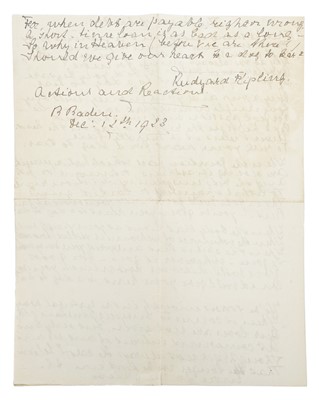 For when debts are payable, right or wrong,
A short-time loan is as bad as a long,
So why in Heaven (before we are there)
Should we give our hearts to a dog to tear?
Rudyard Kipling.
Actions and Reactions.
B Baden
Dec: 12th 1928